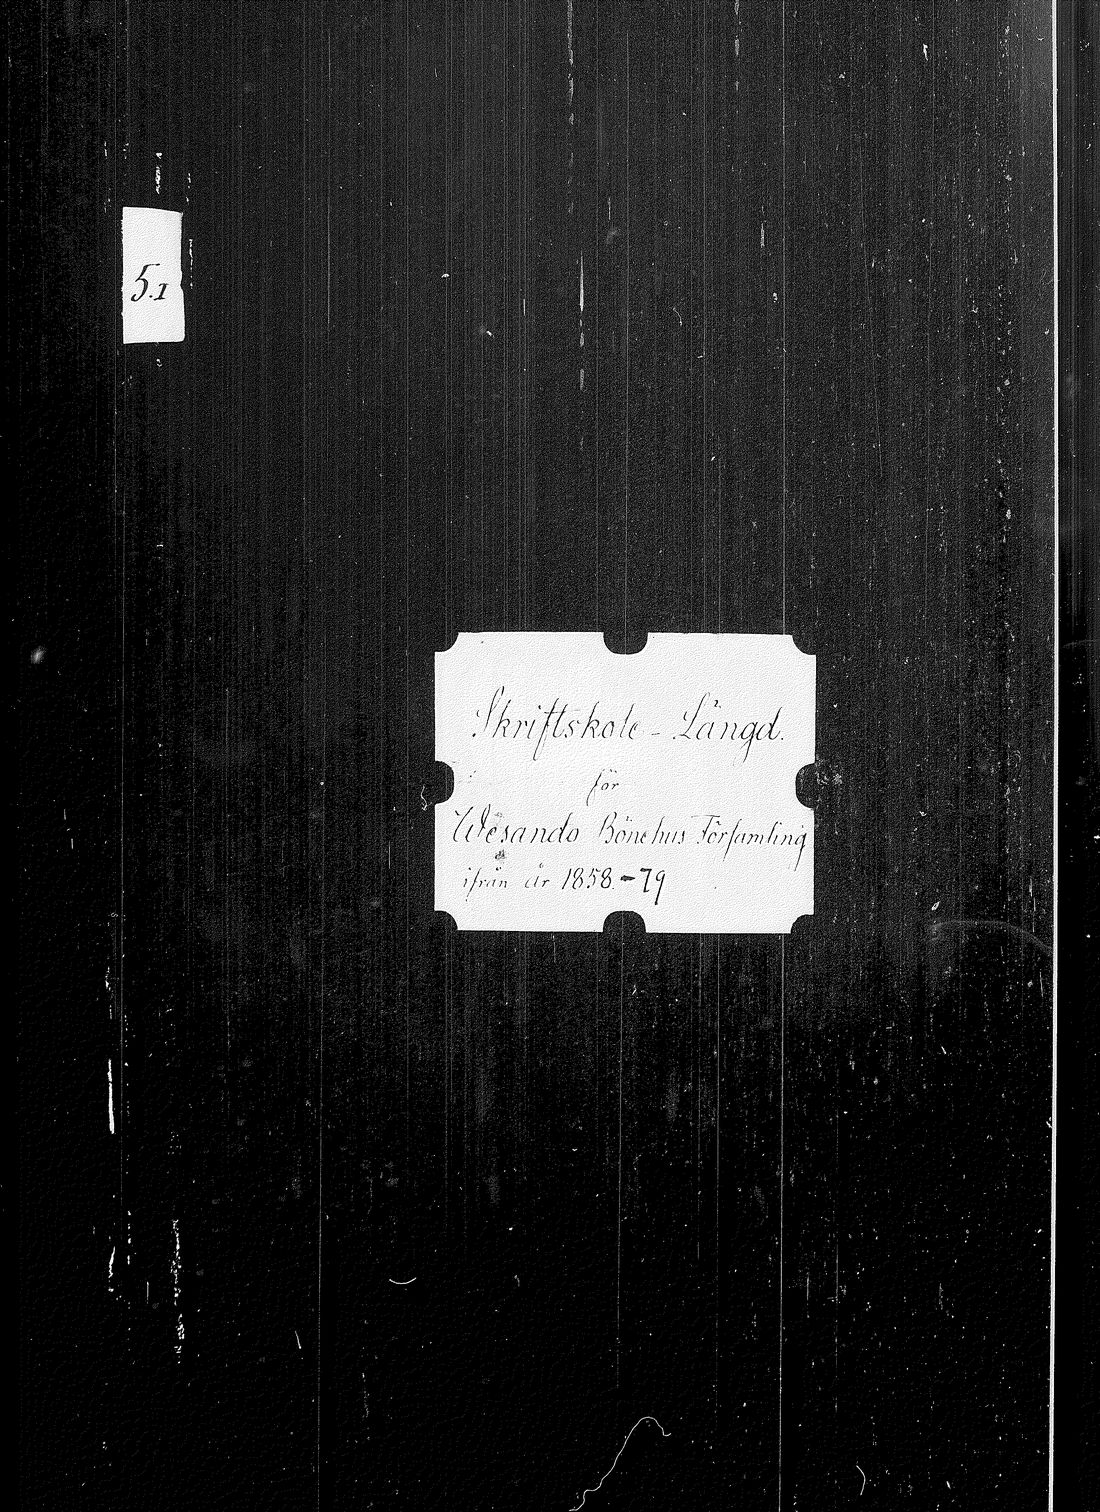 5.1
Skriftskole-Längd.
för
Wesando Bönehus Församling
ifrån år 1858.-79